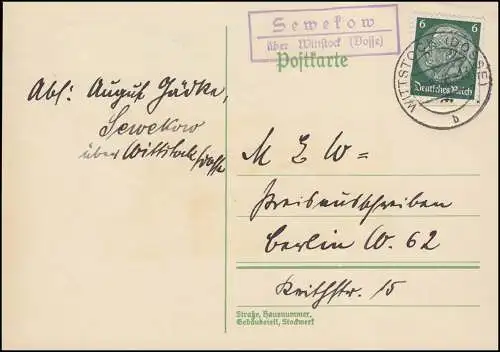 Sewekow
über Wittstock (Dosse)
6 6
Deutsches Reich
WITTSTOCK (DOSSE)
b
Postkarte
Abs: August Jädke,
Sewekow
über Wittstock/Dosse
M E W =
Preisausschreiben
Berlin W. 62
Keithstr. 15
Straße, Hausnummer,
Gebäudeteil, Stockwerk